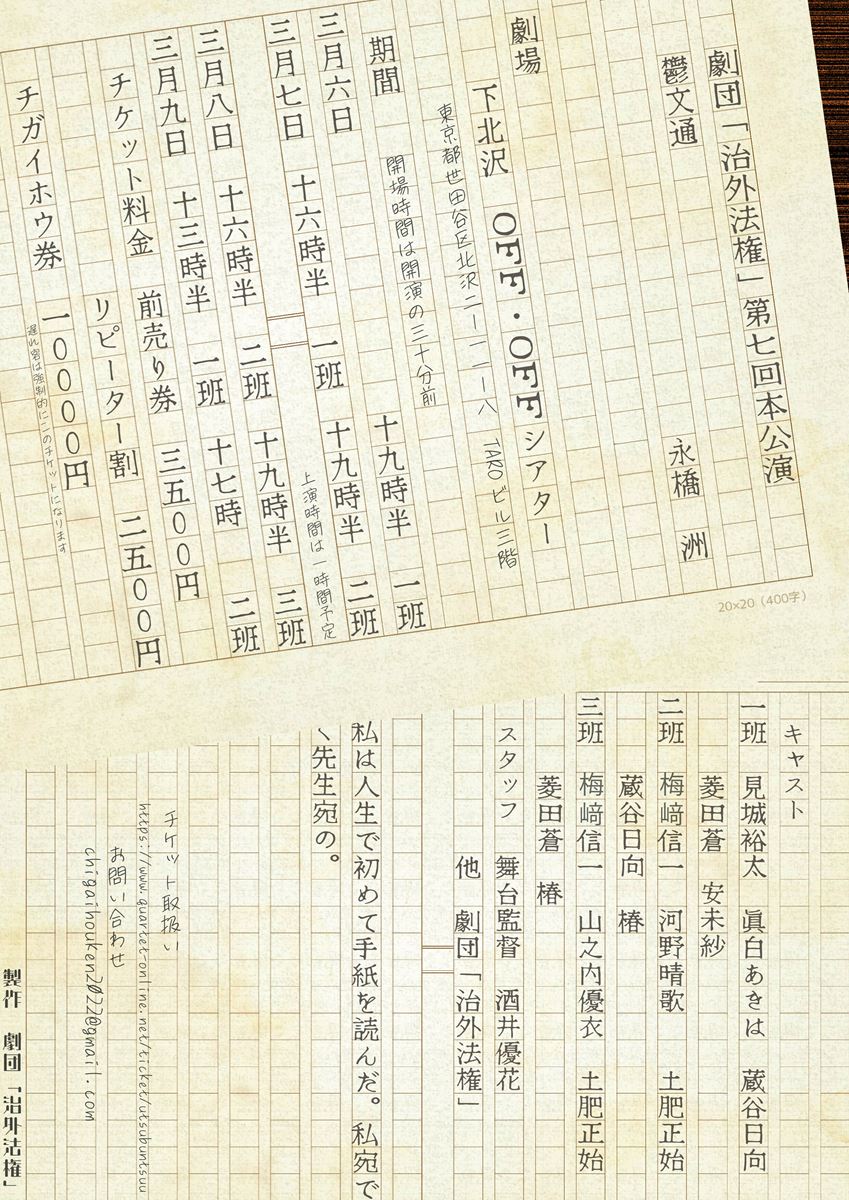 劇団「治外法権」第七回本公演
鬱文通 永橋 洲
劇場
下北沢 OFF・OFFシアター
東京都世田谷区北沢二ー一一ー八 TAROビル三階
開場時間は開演の三十分前
期間
三月六日 十九時半 一班
三月七日 十六時半 一班 十九時半 二班
上演時間は一時間予定
三月八日 十六時半 二班 十九時半 三班
三月九日 十三時半 一班 十七時 二班
チケット料金 前売り券 三五〇〇円
リピーター割 二五〇〇円
チガイホウ券 一〇〇〇〇円
遅れ客は強制的にこのチケットになります
20×20（400字）
キャスト
一班 見城裕太 眞白あきは 蔵谷日向
菱田蒼 安未紗
二班 梅﨑信一 河野晴歌 土肥正始
蔵谷日向 椿
三班 梅﨑信一 山之内優衣 土肥正始
菱田蒼 椿
スタッフ 舞台監督 酒井優花
他 劇団「治外法権」
私は人生で初めて手紙を読んだ。私宛で
く先生宛の。
チケット取扱い
https://www.quartet-online.net/ticket/utsubuntsuu
お問い合わせ
chigaihouken2022@gmail.com
製作 劇団「治外法権」